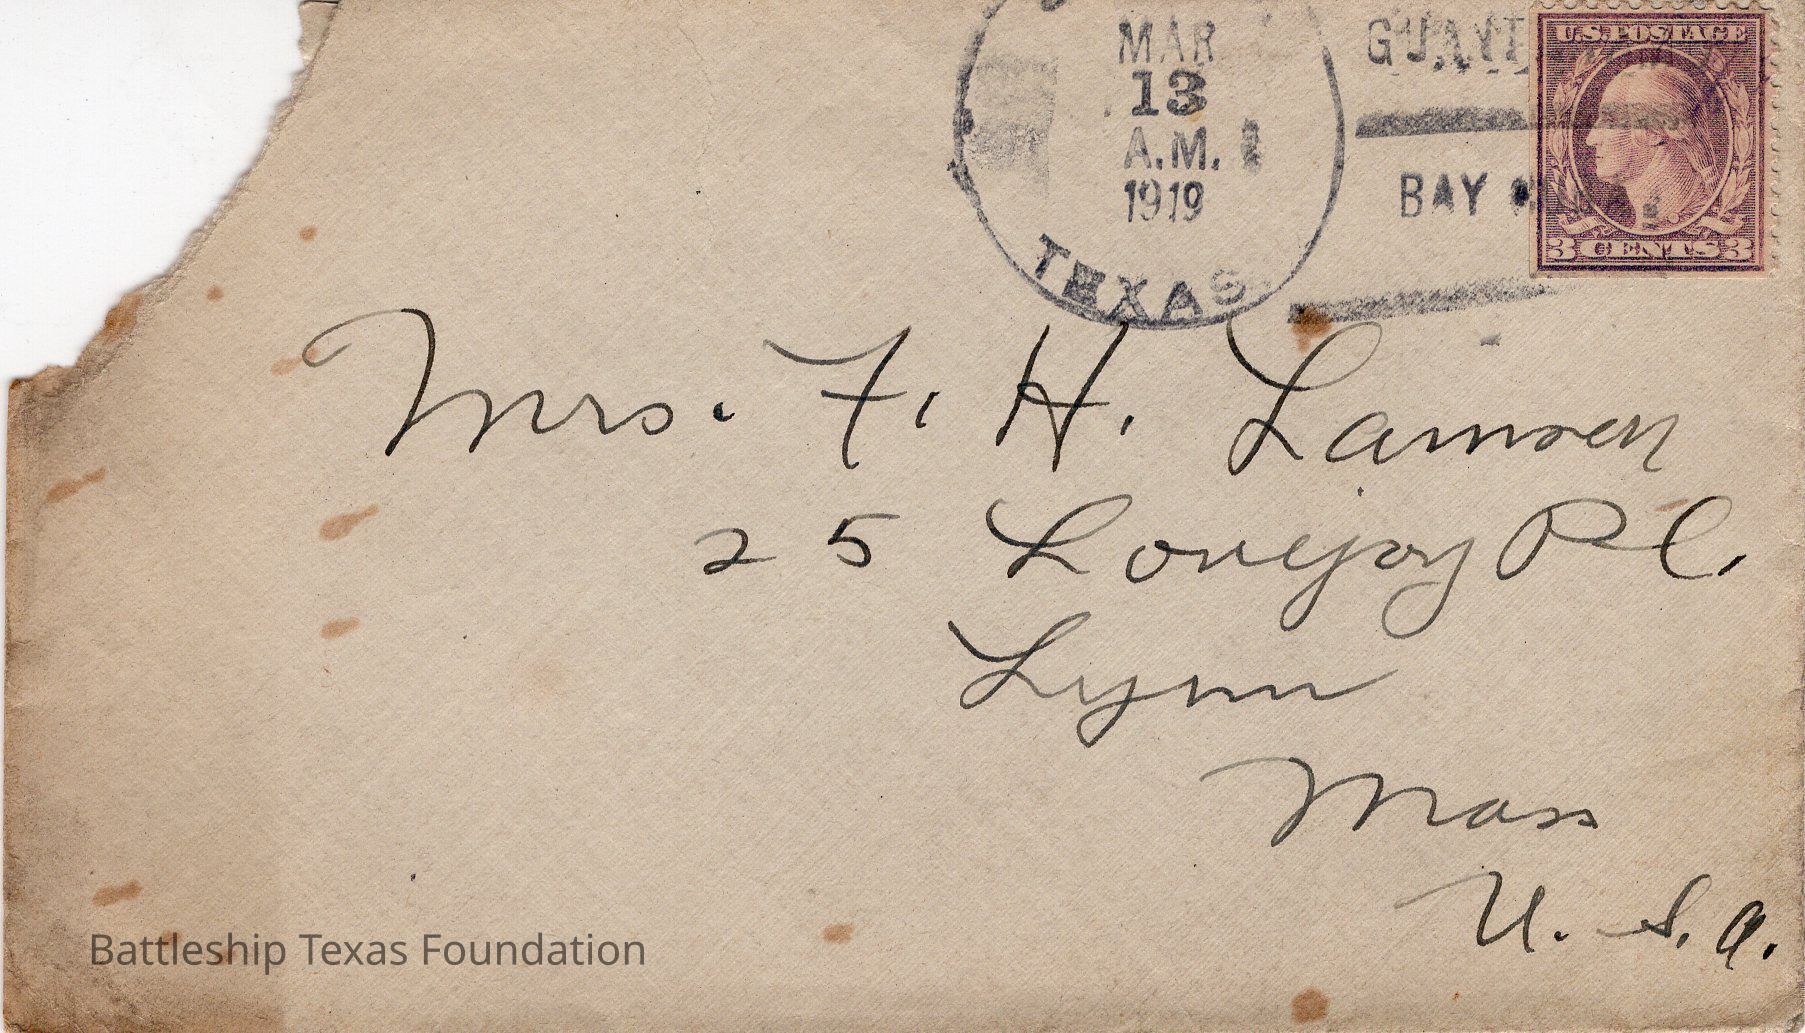 MAR
13
A.M.
1919
TEXAS
BAY
U.S. POSTAGE
3 CENTS 3
Mrs. F. H. Lamson
25 Lovejoy Pl.
Lynn
Mass
U. S. A.
Battleship Texas Foundation